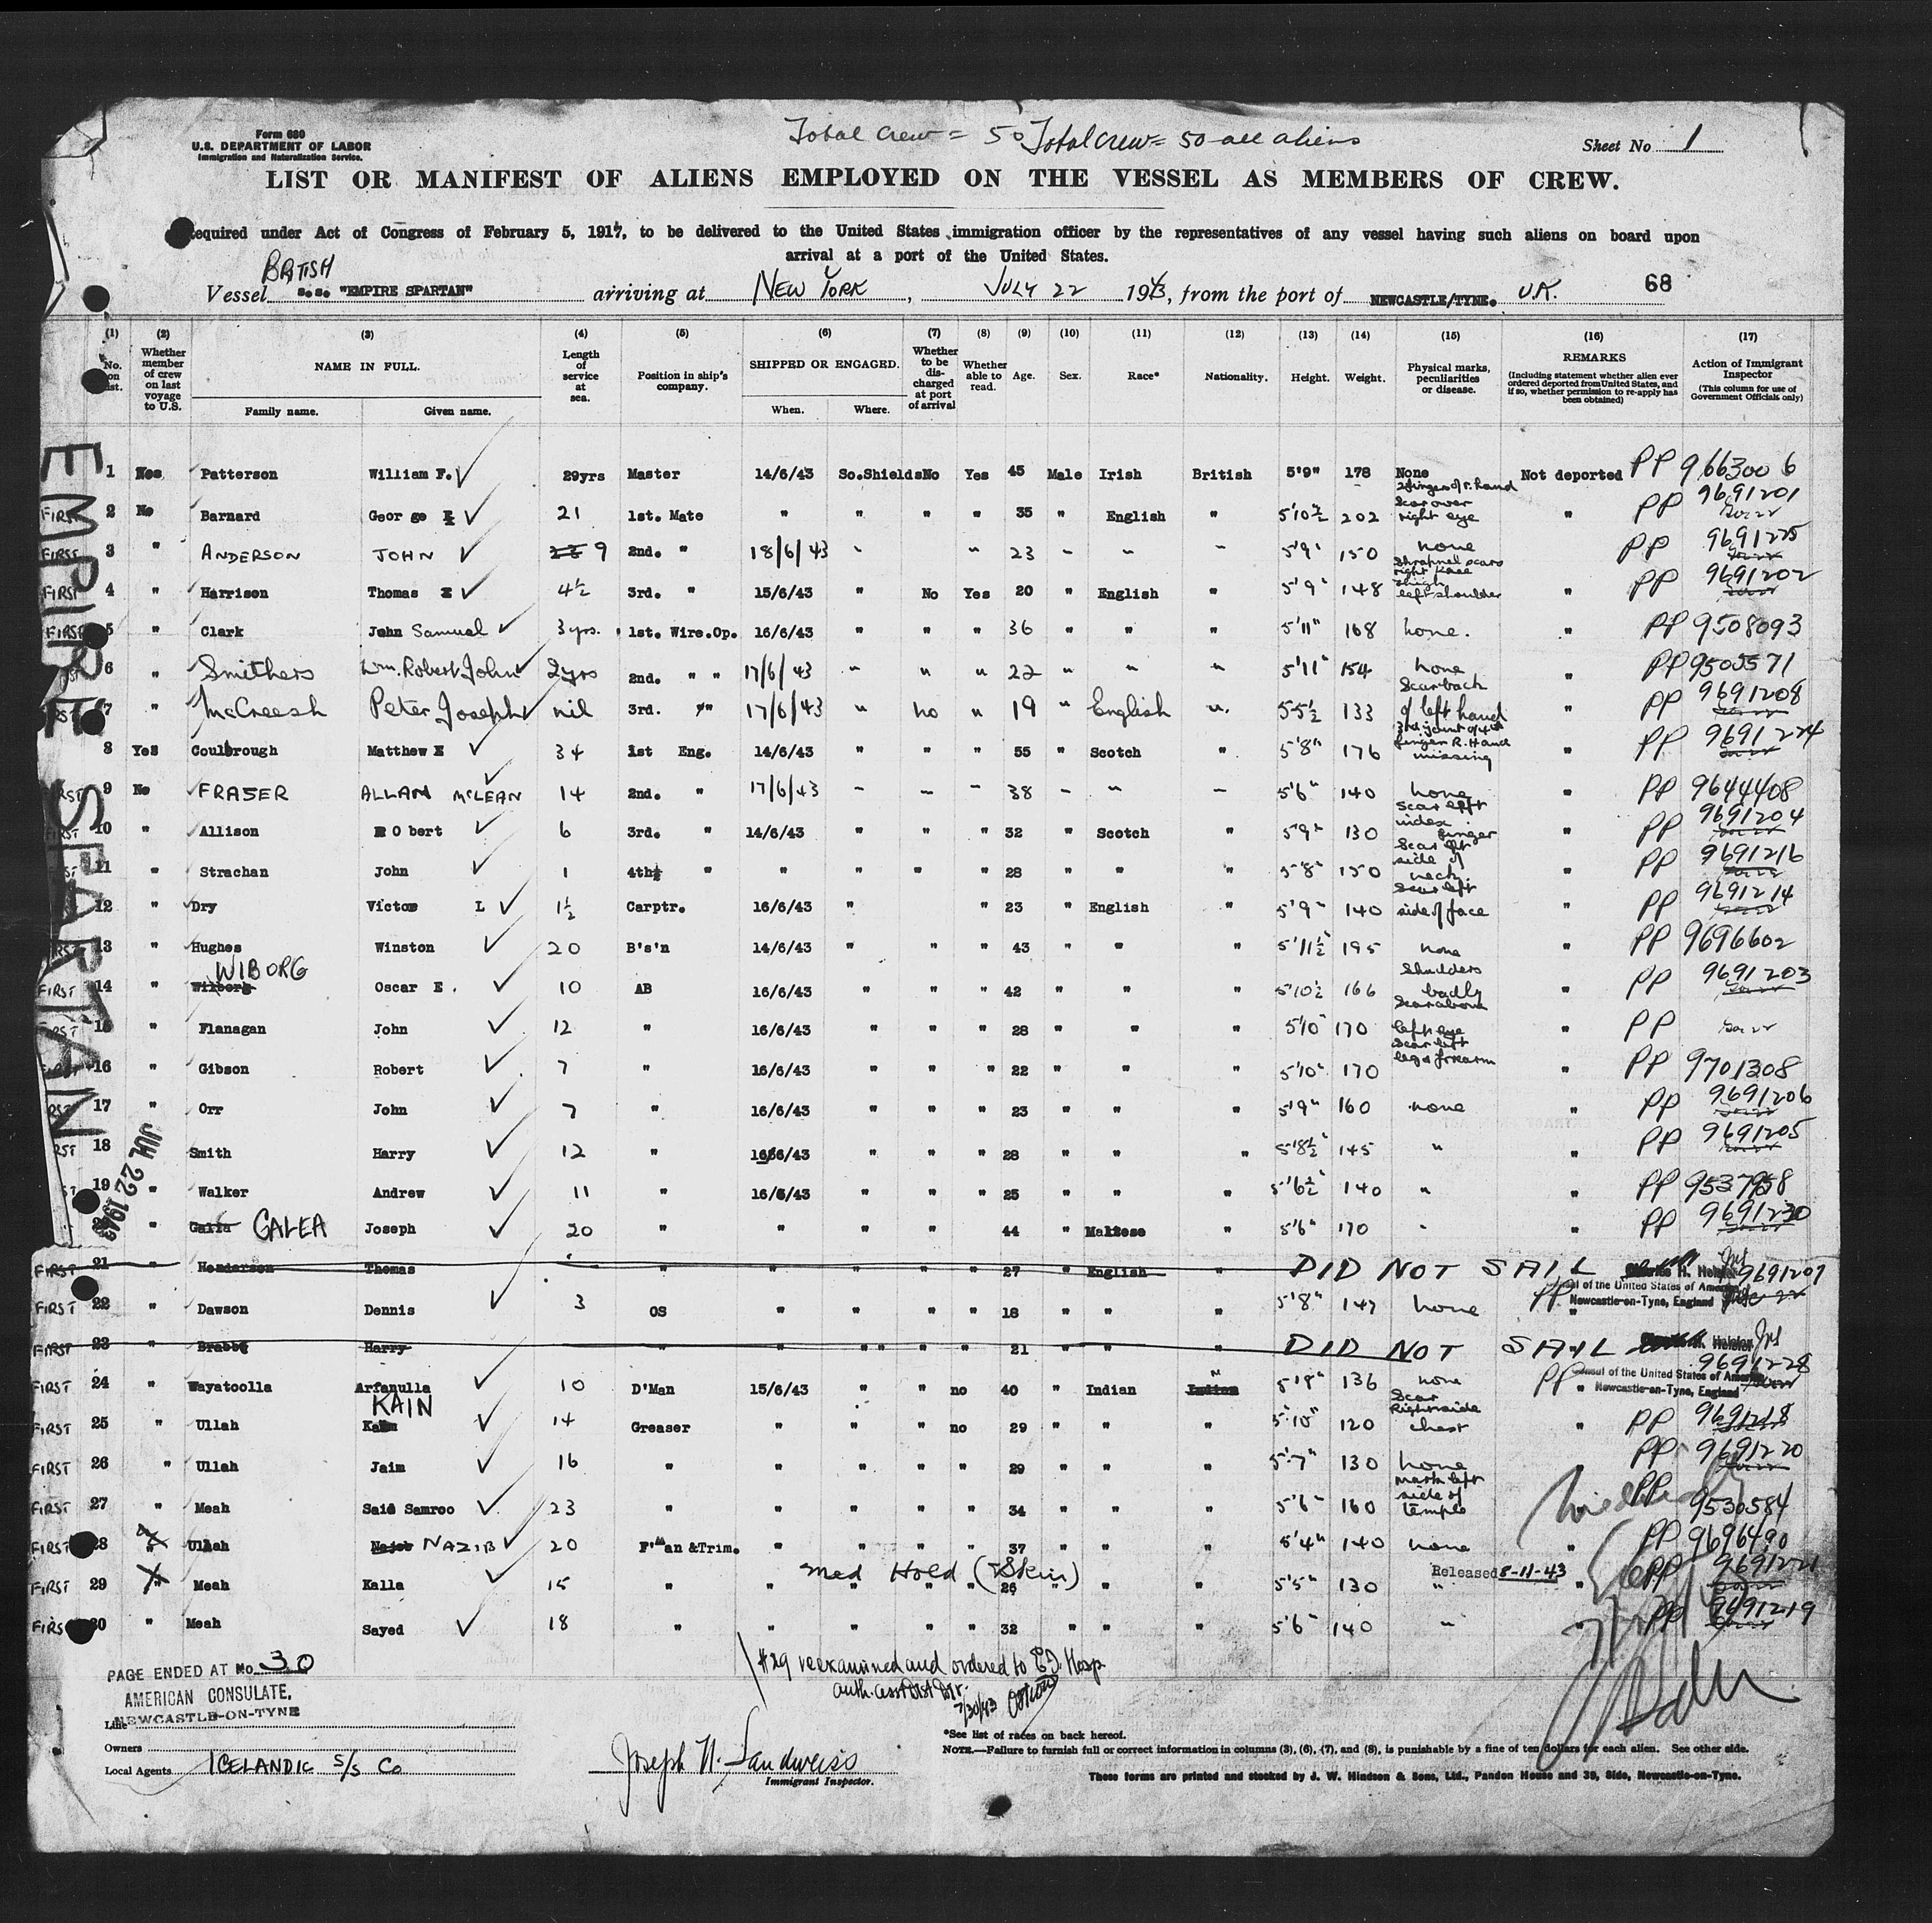 Total Crew = 50 Total Crew = 50 all aliens
Form 680
U.S. DEPARTMENT OF LABOR
Immigration and Naturalization Service.
Sheet No 1
LIST OR MANIFEST OF ALIENS EMPLOYED ON THE VESSEL AS MEMBERS OF CREW.
equired under Act of Congress of February 5, 1917, to be delivered to the United States immigration officer by the representatives of any vessel having such aliens on board upon
arrival at a port of the United States.
BRITISH
Vessel s.s. "EMPIRE SPARTAN" arriving at NEW YORK, JULY 22 1943, from the port of NEWCASTLE/TYNE. UK. 68
(1) (2) (3) (4) (5) (6) (7) (8) (9) (10) (11) (12) (13) (14) (15) (16) (17)
No. on list. Whether member of crew on last voyage to U.S. NAME IN FULL. Length of service at sea. Position in ship's company. SHIPPED OR ENGAGED. Whether to be discharged at port of arrival Whether able to read. Age. Sex. Race* Nationality. Height. Weight. Physical marks, peculiarities or disease. REMARKS (Including statement whether alien ever ordered deported from United States, and if so, whether permission to re-apply has been obtained) Action of Immigrant Inspector (This column for use of Government Officials only)
Family name. Given name. When. Where.
EMPIRE SPARTAN
1 Patterson William F. 29yrs Master 14/6/43 So.Shields No Yes 45 Male Irish British 5'9" 178 None Not deported PP 9663006
FIRST 2 No Barnard George 21 1st. Mate " " " " 35 " English " 5'10½ 202 2 fingers of r. hand Scar over right eye " PP 9691201
FIRST 3 " ANDERSON JOHN 9 2nd. " 18/6/43 " " 23 " " " 5'9" 150 none PP 9691225
FIRST 4 " Harrison Thomas 4½ 3rd. " 15/6/43 " No Yes 20 " English " 5'9" 148 Shrapnel scars right knee thigh left shoulder " PP 9691202
FIRST 5 " Clark John Samuel 3yrs. 1st. Wire.Op. 16/6/43 " " " 36 " " " 5'11" 168 none. " PP 9508093
6 " Smithers Wm. Robert John 2yrs 2nd. " " 17/6/43 " " " 22 " " " 5'11" 154 none " PP 9505571
7 " McCreesh Peter Joseph nil 3rd. " " 17/6/43 " no " 19 " English " 5'5½ 133 Scar back of left hand " PP 9691208
8 Yes Coulbrough Matthew 34 1st Eng. 14/6/43 " " " 55 " Scotch " 5'8" 176 3rd joint of 4th finger R. Hand missing " PP 9691224
9 No FRASER ALLAN McLEAN 14 2nd. " 17/6/43 " " " 38 " " " 5'6" 140 none " PP 9644408
10 " Allison RObert 6 3rd. " 14/6/43 " " " 32 " Scotch " 5'9" 130 Scar left index finger " PP 9691204
11 " Strachan John 1 4th " " " " " 28 " " " 5'8" 150 Scar left side of neck " PP 9691216
12 " Dry Victor L 1½ Carptr. 16/6/43 " " 23 " English " 5'9" 140 Scar left side of face " PP 9691214
13 " Hughes Winston 20 B's'n 14/6/43 " " " 43 " " " 5'11½ 195 none " PP 9696602
FIRST 14 " WIBORG Oscar E. 10 AB 16/6/43 " " " 42 " " " 5'10½ 166 badly " PP 9691203
15 " Flanagan John 12 " 16/6/43 " " " 28 " " " 5'10" 170 Scar above left eye " PP
16 " Gibson Robert 7 " 16/6/43 " " " 22 " " " 5'10" 170 Scar left leg & forearm " PP 9701308
17 " Orr John 7 " 16/6/43 " " " 23 " " " 5'9" 160 none " PP 9691206
18 " Smith Harry 12 " 16/6/43 " " " 28 " " " 5'8½" 145 " " PP 9691205
19 " Walker Andrew 11 " 16/6/43 " " " 25 " " " 5'6½ 140 " " PP 9537958
JUL 22 1943
" GALEA Joseph 20 " " " " " 44 " Maltese " 5'6" 170 " " PP 9691230
FIRST 21 " Henderson Thomas " " " " " 27 " English " DID NOT SAIL
Consul of the United States of America
Newcastle-on-Tyne, England
FIRST 22 " Dawson Dennis 3 OS " " " " 18 " " " 5'8" 147 none " PP 9691207
FIRST 23 " Brabbs Harry " " " " 21 " " " DID NOT SAIL
Consul of the United States of America
Newcastle-on-Tyne, England
FIRST 24 " Wayatoolla Arfanulla 10 D'Man 15/6/43 " " no 40 " Indian " 5'8" 136 none " PP 9691228
FIRST 25 " Ullah KAIN 14 Greaser " " " no 29 " " " 5'10" 120 Scar Right side chest " PP 9691218
FIRST 26 " Ullah Jaim 16 " " " " " 29 " " " 5'7" 130 none " PP 9691220
FIRST 27 " Meah Said Samroo 23 " " " " " 34 " " " 5'6" 160 mark left side of temple PP 9530584
FIRST 28 Ullah NAZIB 20 F'man &Trim. " " " " 37 " " " 5'4" 140 none " PP 9696490
FIRST 29 Meah Kalla 15 " " " " " 26 " " " 5'5" 130 " " PP 9691221
med Hold (Skin)
Released 8-11-43
FIRST 30 " Meah Sayed 18 " " " " " 32 " " " 5'6 140 " " PP 9691219
PAGE ENDED AT No. 30
AMERICAN CONSULATE,
NEWCASTLE-ON-TYNE
#29 reexamined and ordered to E.I. Hosp
7/30/43
Line
Owners
Local Agents ICELANDIC S/S Co
Joseph N. Landweiss
Immigrant Inspector.
*See list of races on back hereof.
NOTE.—Failure to furnish full or correct information in columns (3), (6), (7), and (8), is punishable by a fine of ten dollars for each alien. See other side.
These forms are printed and stocked by J. W. Hindson & Sons, Ltd., Pandon House and 39, Side, Newcastle-on-Tyne.